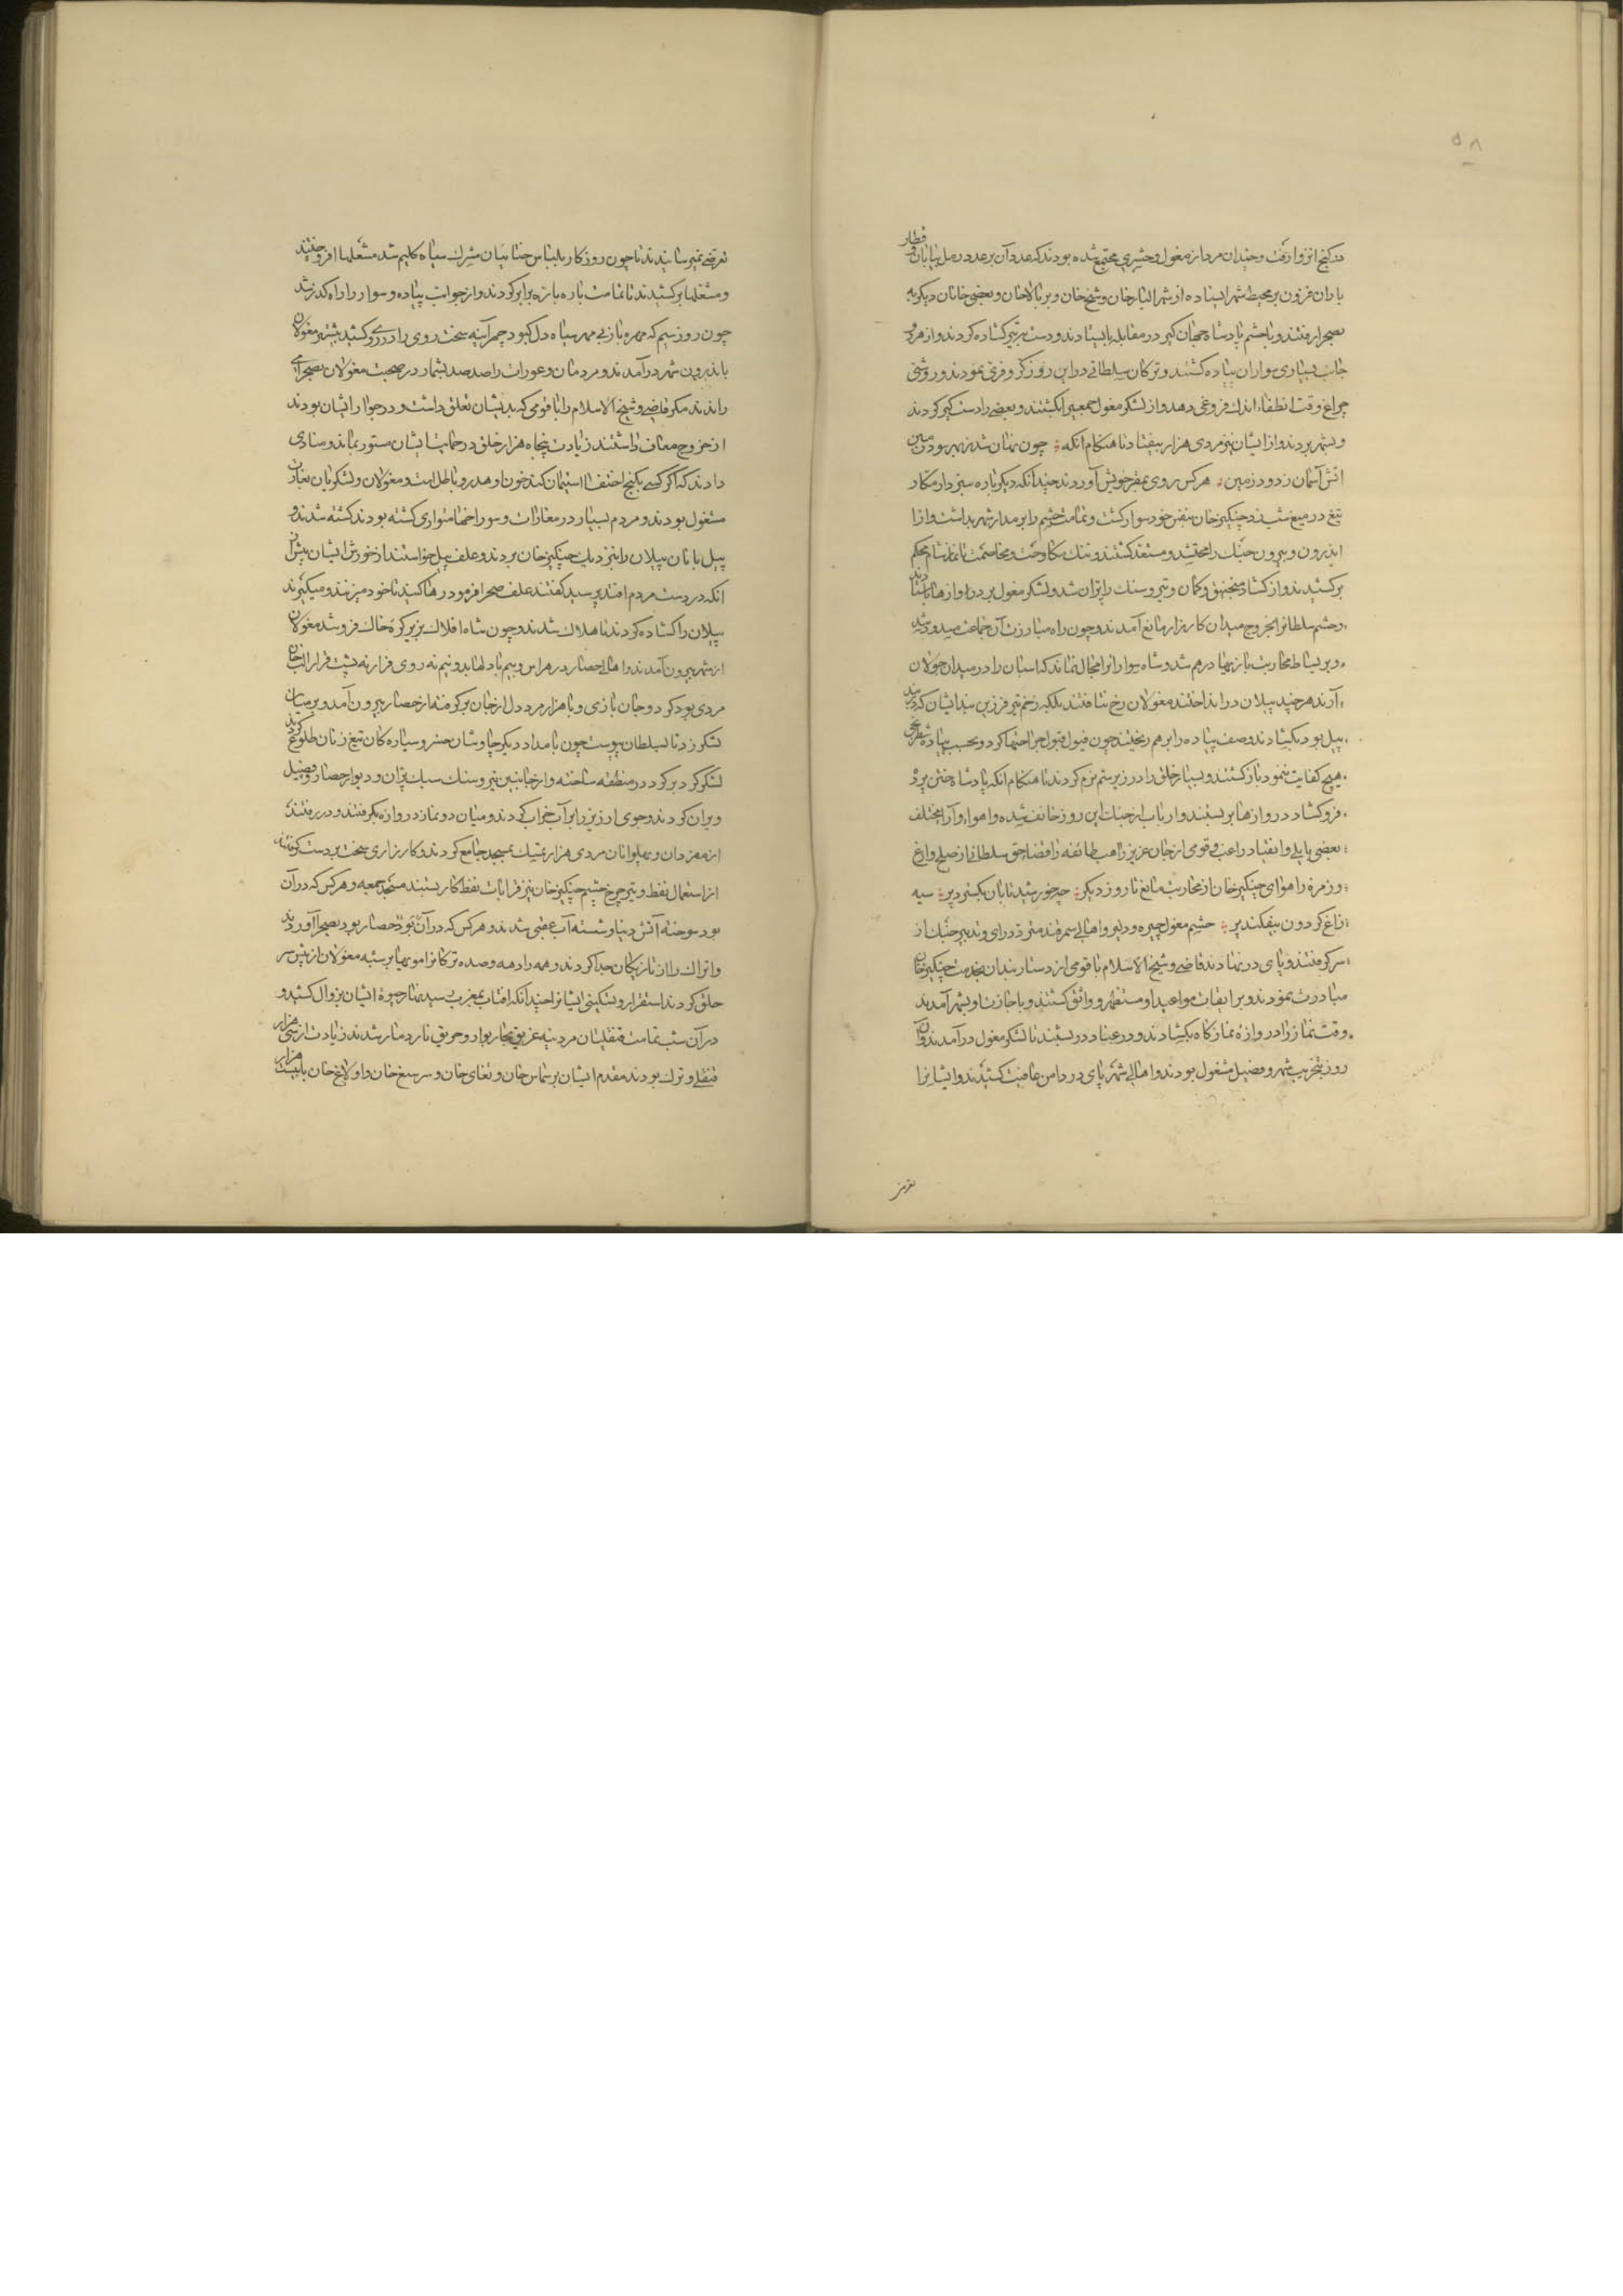 ۵۸
در کنج انزوا رفت و چندان مرد از مغول و حشری مجتمع شده بودند که عدد آن بر عدد رمل بیابان و قطار
باران فزون بر محیط شهر ایستاده از شهر البارخان و شیخ خان و بالاخان و بعضی خانان دیگر به
بصحرا رفتند و با حشم پادشاه جهان گیر در مقابله بایستادند و دست بتیر گشاده کردند و از هر دو
جانب بسیاری سواران پیاده کشتند و ترکان سلطانی در این روز کر و فری نمودند و روشنی
چراغ وقت انطفاء اندک فروغی دهد و از لشکر مغول جمعی را بکشتند و بعضی را دستگیر کردند
و بشهر بردند و از ایشان نیز مردی هزار بیفتاد تا هنگام آنکه چون نهان شد ز بهر سود زمین
آتش آسمان ز دود زمین هر کس روی بمقر خویش آوردند چندانکه دیگر باره سپردار مکار
تیغ در میغ شب زد چنگیز خان بنفس خود سوار گشت و تمامت حشم را بر مدار شهر بداشت و از
اندرون و بیرون جنگ را محتشد و مستعد گشتند و تنگ مکاوحت و مخاصمت تا نماز شام محکم
برکشیدند و از گشاد منجنیق و کمان و تیر و سنگ پران شد و لشکر مغول بر در دروازها بایستادند
و حشم سلطان را از خروج میدان کارزار مانع آمدند و چون راه مبارزت آن جماعت مسدود شد
و بر بساط محاربت بازیها درهم شد و شاه سواران را مجال نماند که اسبان را در میدان جولان
آرند هر چند پیلان در انداختند مغولان رخ نتافتند بلکه زخم تیر فرزین بند ایشان که در بند
پیل بود بگشادند و صف پیاده را برهم ریختند چون فیول قبول جراحتها کرد و بحسب پیاده شطرنجی
هیچ کفایت ننمود بازگشتند و بسیار خلق را در زیر ستم نرم کردند تا هنگام آنکه پادشاه ختن پرد
فروگشاد دروازها بربستند و ارباب از جنات این روز خائف شده و اهواء و آرا مختلف
بعضی بایلی و انقیاد راغب و قومی از جان عزیز راهب طائفه را قضا حق سلطانی از صلح وازع
و زمره را هوای چنگیز خان از محاربت مانع تا روز دیگر چو خورشید تابان بگسترد پر سیه
زاغ گردون بیفکند پر حشم مغول چیره و دلیر و اهالی سمرقند متردد رای و تدبیر جنگ از
سر گرفتند و پای در نهادند قاضی و شیخ الاسلام با قومی از دستاربندان بخدمت چنگیز خان
مبادرت نمودند و بر ایفای مواعید او مستظهر و واثق گشتند و باجازت او بشهر آمدند
وقت نماز را دروازه نمازگاه بگشادند و در عناد دربستند تا لشکر مغول درآمدند و آن
روز بتخریب شهر و فصیل مشغول بودند و اهالی شهر پای در دامن عافیت کشیدند و ایشان را
تعرضی
تعرضی نمی‌رسانیدند تا چون روزگار بلباس ختائیان مشرک سیاه گلیم شد مشعلها افروختند
و مشعلها برکشیدند تا تمامت باره با زه برابر کردند و از جوانب پیاده و سوار را راه گذر شد
چون روز سیم که مهره باز بی مهر سیاه دل کبود چهر آینه سخت روی را در روی کشید بیشتر مغولان
باندرون شهر درآمدند و مردمان و عورات را صد صد بشمار در صحبت مغولان بصحرا می
راندند مگر قاضی و شیخ الاسلام را با قومی که بدیشان تعلق داشت و در جوار ایشان بودند
از خروج معاف داشتند زیادت پنجاه هزار خلق در حمایت ایشان مستور بماند و منادی
دادند که اگر کسی بکنج اختفا استیمان کند خون او هدر و باطل است و مغولان و لشکریان بغارت
مشغول بودند و مردم بسیار در مغارات و سوراخها متواری گشته بودند کشته شدند و
پیل بانان پیلان را بنزدیک چنگیز خان بردند و علف پیل خواستند از خورش ایشان پیش از
آنک در دست مردم افتد پرسید گفتند علف صحرا فرمود رها کنید تا خود می‌زنند و می‌گیرند
پیلان را گشاده کردند تا هلاک شدند و چون شاه افلاک بزیر کره خاک فرو شد مغولان
از شهر بیرون آمدند و اهالی حصار در هراس و بیم با دلها بدو نیم نه روی قرار نه پشت فرار الب خان
مردی بود کرد و جان بازی و با هزار مرد دل از جان برگرفته از حصار بیرون آمد و بر میان
لشکر زد تا بسلطان پیوست چون بامداد دیگر چاوشان خسرو سیارگان تیغ زنان طلوع کردند
لشکر گرد بر گرد در منطقه ساخته و از جانبین تیر و سنگ سبک پران و دیوار حصار و فصیل
ویران کردند و جوی ارزیز را بر آب خراب کردند و میان دو نماز دروازه بگرفتند و در رفتند
از مفردان و پهلوانان مردی هزار تمسک بمسجد جامع کردند و کارزاری سخت بر دست گرفتند
از استعمال نفط و تیر چرخ حشم چنگیز خان نیز قرابات نفط کار بستند مسجد جمعه و هر کس که در آن
بود سوخته آتش دنیا و شسته آب عقبی شدند و هر کس که در آن حصار بود بصحرا آوردند
و اتراک را از تازیکان جدا کردند و همه را دهه و صده ترکان را مویها بر شبه مغولان از پیش سر
حلق کردند استقرار و تسکین ایشان را چندانکه آفتاب بمغرب رسید نهار حیوة ایشان بزوال کشید و
در آن شب تمامت قنقلیان مردینه غریق بحار بوار و حریق نار دمار شدند زیادت از سی هزار
قنقلی و ترک بودند مقدم ایشان برشماس خان و تغای خان و سرسیغ خان و اولاغ خان با بیست